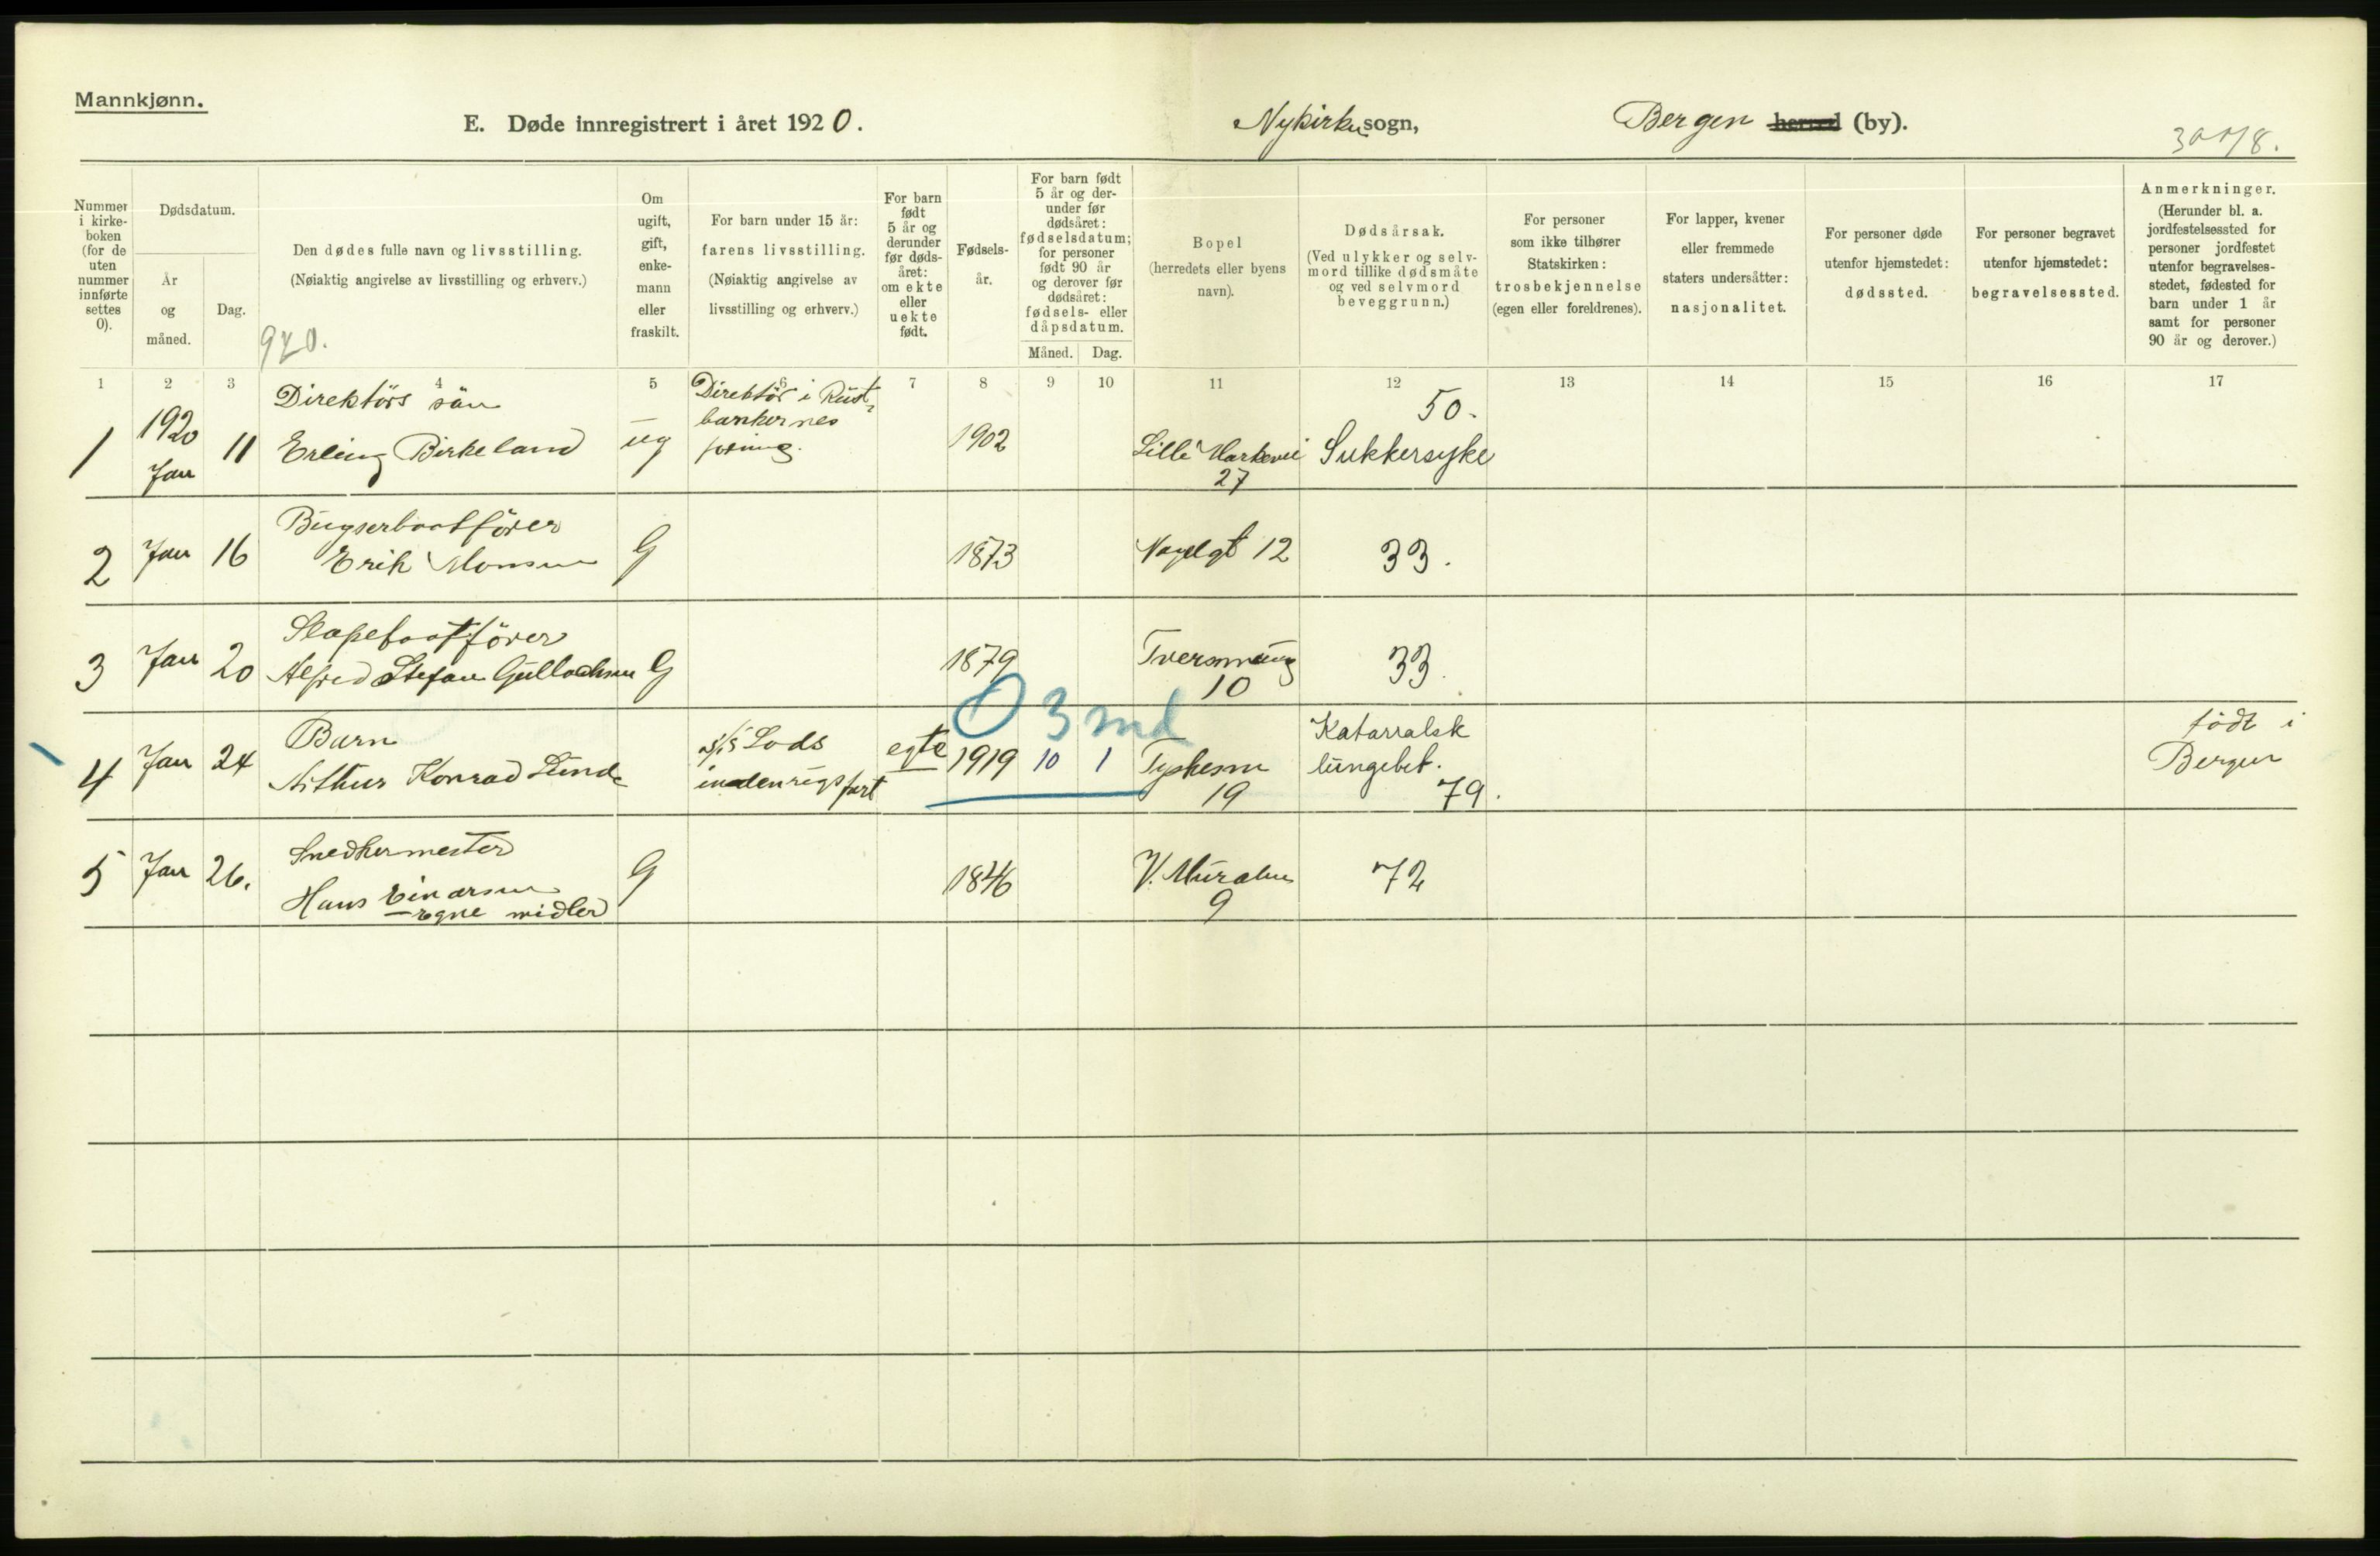 Mannkjønn.
E. Døde innregistrert i året 1920.
Nykirke sogn,
Bergen herred (by).
Nummer i kirke-
boken
(for de
uten
nummer
innførte
settes
0).
Dødsdatum.
År
og
måned.
Dag.
Den dødes fulle navn og livsstilling.
(Nøiaktig angivelse av livsstilling og erhverv.)
920.
Om
ugift,
gift,
enke-
mann
eller
fraskilt.
For barn under 15 år:
farens livsstilling.
(Nøiaktig angivelse av
livsstilling og erhverv.)
For barn
født
5 år og
derunder
før døds-
året:
om ekte
eller
uekte
født.
Fødsels-
år.
For barn født
5 år og der-
under før
dødsåret:
fødselsdatum;
for personer
født 90 år
og derover før
dødsåret:
fødsels- eller
dåpsdatum.
Måned. Dag.
Bopel
(herredets eller byens
navn).
Dødsårsak.
(Ved ulykker og selv-
mord tillike dødsmåte
og ved selvmord
beveggrunn.)
For personer
som ikke tilhører
Statskirken:
trosbekjennelse
(egen eller foreldrenes).
For lapper, kvener
eller fremmede
staters undersåtter:
nasjonalitet.
For personer døde
utenfor hjemstedet:
dødssted.
For personer begravet
utenfor hjemstedet:
begravelsessted.
Anmerkninger.
(Herunder bl. a.
jordfestelsessted for
personer jordfestet
utenfor begravelses-
stedet, fødested for
barn under 1 år
samt for personer
90 år og derover.)
1 2 3 4 5 6 7 8 9 10 11 12 13 14 15 16 17
1 1920 Jan 11 Direktörs sön
Erling Birkeland ug Direktör i
bankernes 1902 Lille Markevei
27 50.
Sukkersyke
2 Jan 16 Bugserbaatförer
Erik Monsen G 1873 12 33.
3 Jan 20 Slæpebaatförer
Alfred Stefan G 1879 Tversmaug
10 33.
O 3 md
4 Jan 24 Barn
Arthur Konrad Lunde s/s Lods
indenrigsfart egte 1919 10 1 Tyskesm
19 Katarralsk
lungebet.
79. födt i
Bergen
5 Jan 26. Snedkermester
Hans Einarsen
- Egne midler G 1846 V. Muralm
9 72